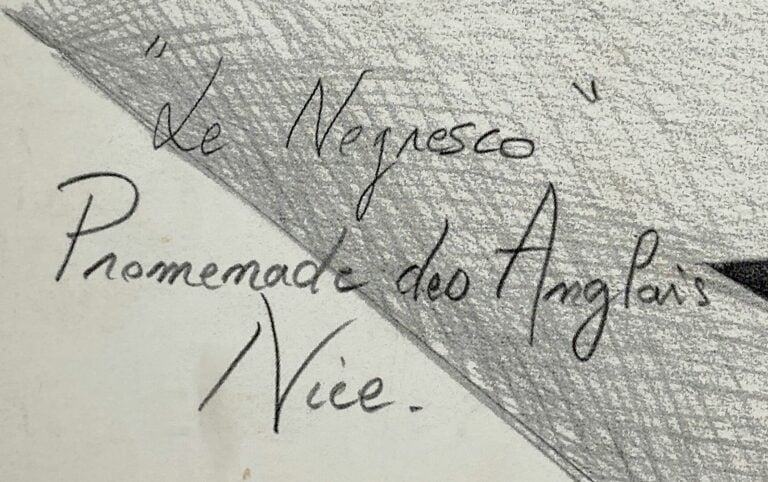 "Le Negresco"
Promenade des Anglais
Nice.